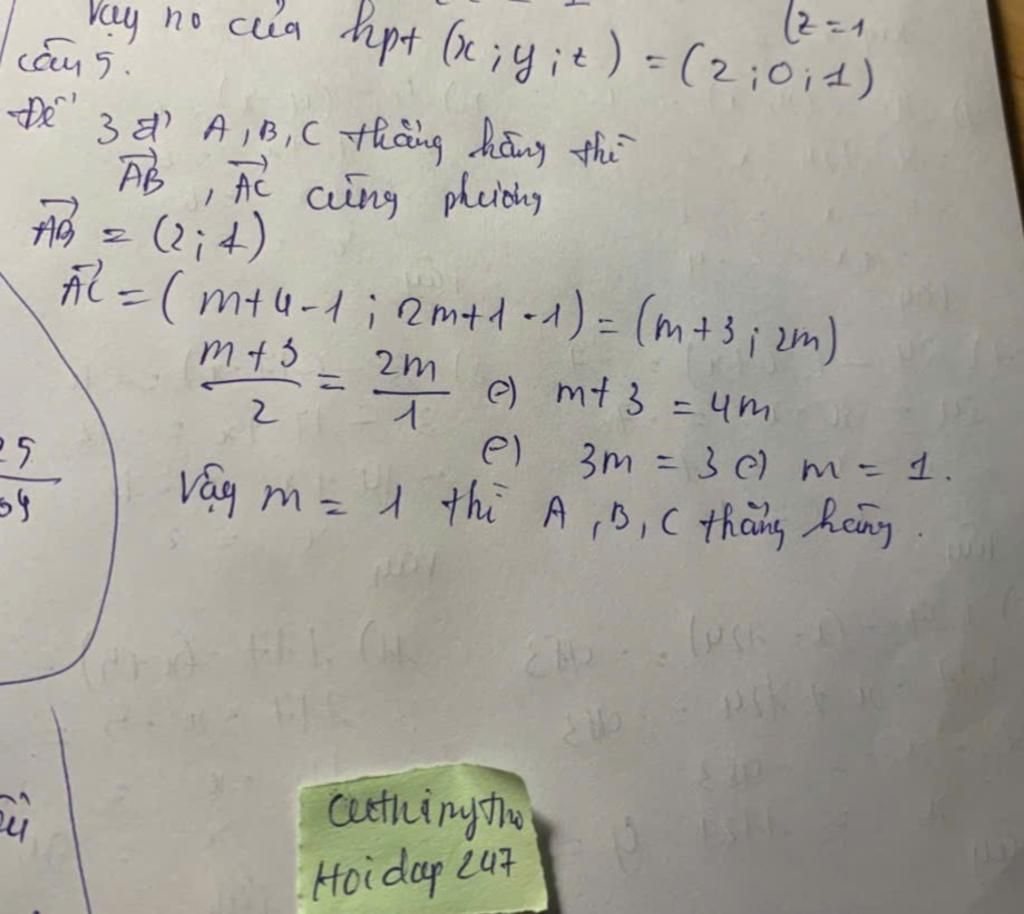 (z = 1
Vậy no của hpt (x ; y ; z) = (2 ; 0 ; 1)
câu 5.
Để 3 đ' A, B, C thẳng hàng thì
AB, AC cùng phương
AB = (2 ; 1)
AC = (m+4-1 ; 2m+1-1) = (m+3 ; 2m)
m+3/2 = 2m/1 (=) m+3 = 4m
(=) 3m = 3 (=) m = 1.
Vậy m = 1 thì A, B, C thẳng hàng.
25
64
Hoidap 247